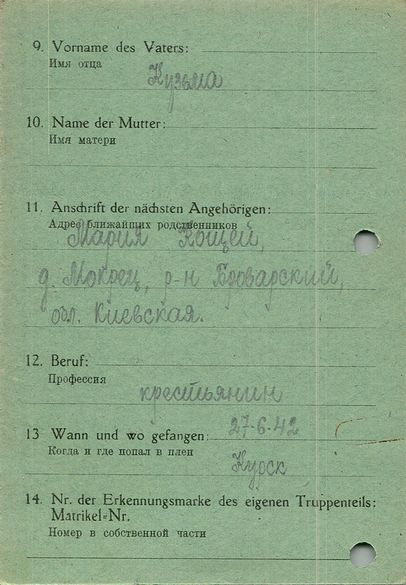 9. Vorname des Vaters:
Имя отца
Кузьма
10. Name der Mutter:
Имя матери
11. Anschrift der nächsten Angehörigen:
Адрес ближайших родственников
Мария Кощей,
д. Мокрец, р-н Броварский,
обл. Киевская.
12. Beruf:
Профессия
крестьянин
13 Wann und wo gefangen: 27-6-42
Когда и где попал в плен
Курск
14. Nr. der Erkennungsmarke des eigenen Truppenteils:
Matrikel-Nr.
Номер в собственной части